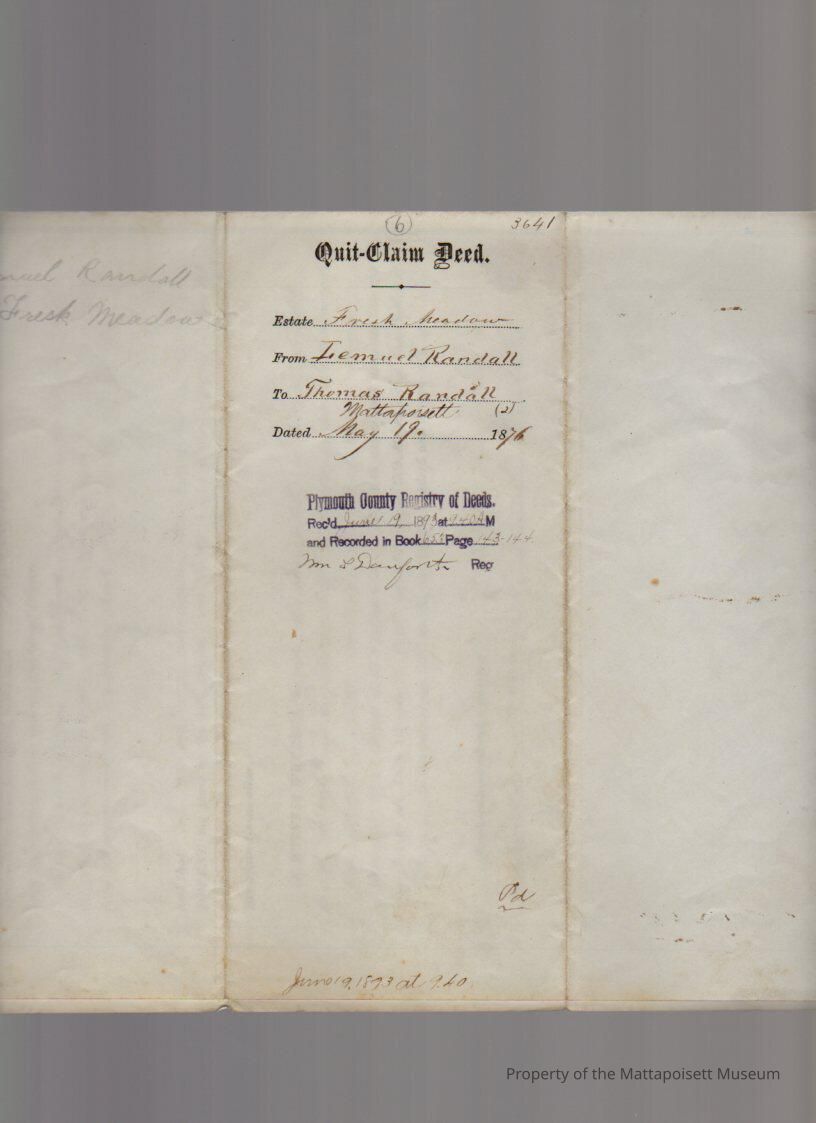 6
3641
Quit-Claim Deed.
Randall
Fresh Meadow
Estate Fresh Meadow
From Lemuel Randall
To Thomas Randall
Mattapoisett (2)
Dated May 19. 1876
Plymouth County Registry of Deeds.
Rec'd, June 19, 1893 at 9.40 A M
and Recorded in Book 653 Page 143-144
Wm S Danforth. Reg
Pd
June 19, 1893 at 9.40
Property of the Mattapoisett Museum